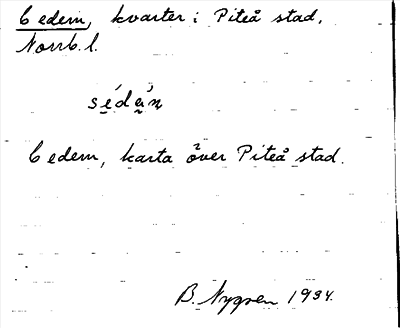 Cedern, kvarter i Piteå stad,
Norrb. l.
sédän
Cedern, karta över Piteå stad.
B. Nygren 1934.